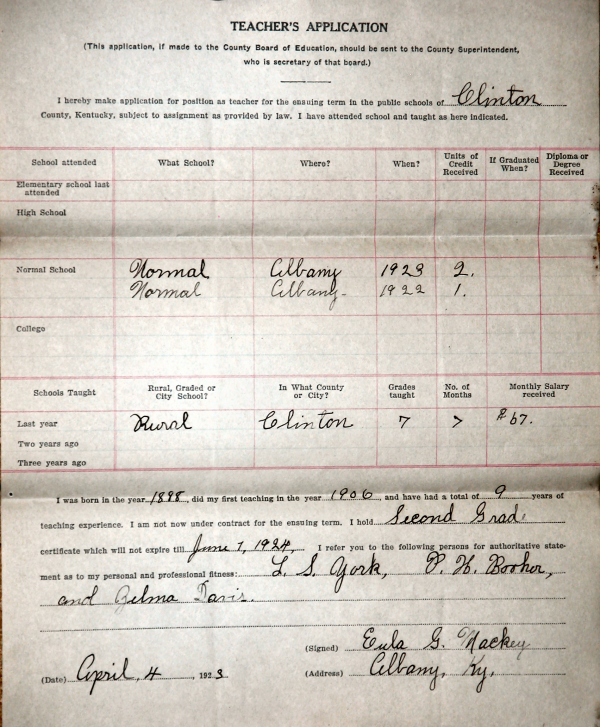 TEACHER'S APPLICATION
(This application, if made to the County Board of Education, should be sent to the County Superintendent,
who is secretary of that board.)
I hereby make application for position as teacher for the ensuing term in the public schools of Clinton
County, Kentucky, subject to assignment as provided by law. I have attended school and taught as here indicated.
School attended What School? Where? When? Units of Credit Received If Graduated When? Diploma or Degree Received
Elementary school last attended
High School
Normal School Normal Albany 1923 2.
Normal Albany- 1922 1.
College
Schools Taught Rural, Graded or City School? In What County or City? Grades taught No. of Months Monthly Salary received
Last year Rural Clinton 7 7 $67.
Two years ago
Three years ago
I was born in the year 1888, did my first teaching in the year 1906 and have had a total of 9 years of
teaching experience. I am not now under contract for the ensuing term. I hold Second Grad.
certificate which will not expire till June 7, 1924, I refer you to the following persons for authoritative state-
ment as to my personal and professional fitness: L. S. York, P. H. Booher,
and Zelma Davis.
(Signed) Eula G. Mackey
(Date) April, 4 1923 (Address) Albany, Ky,